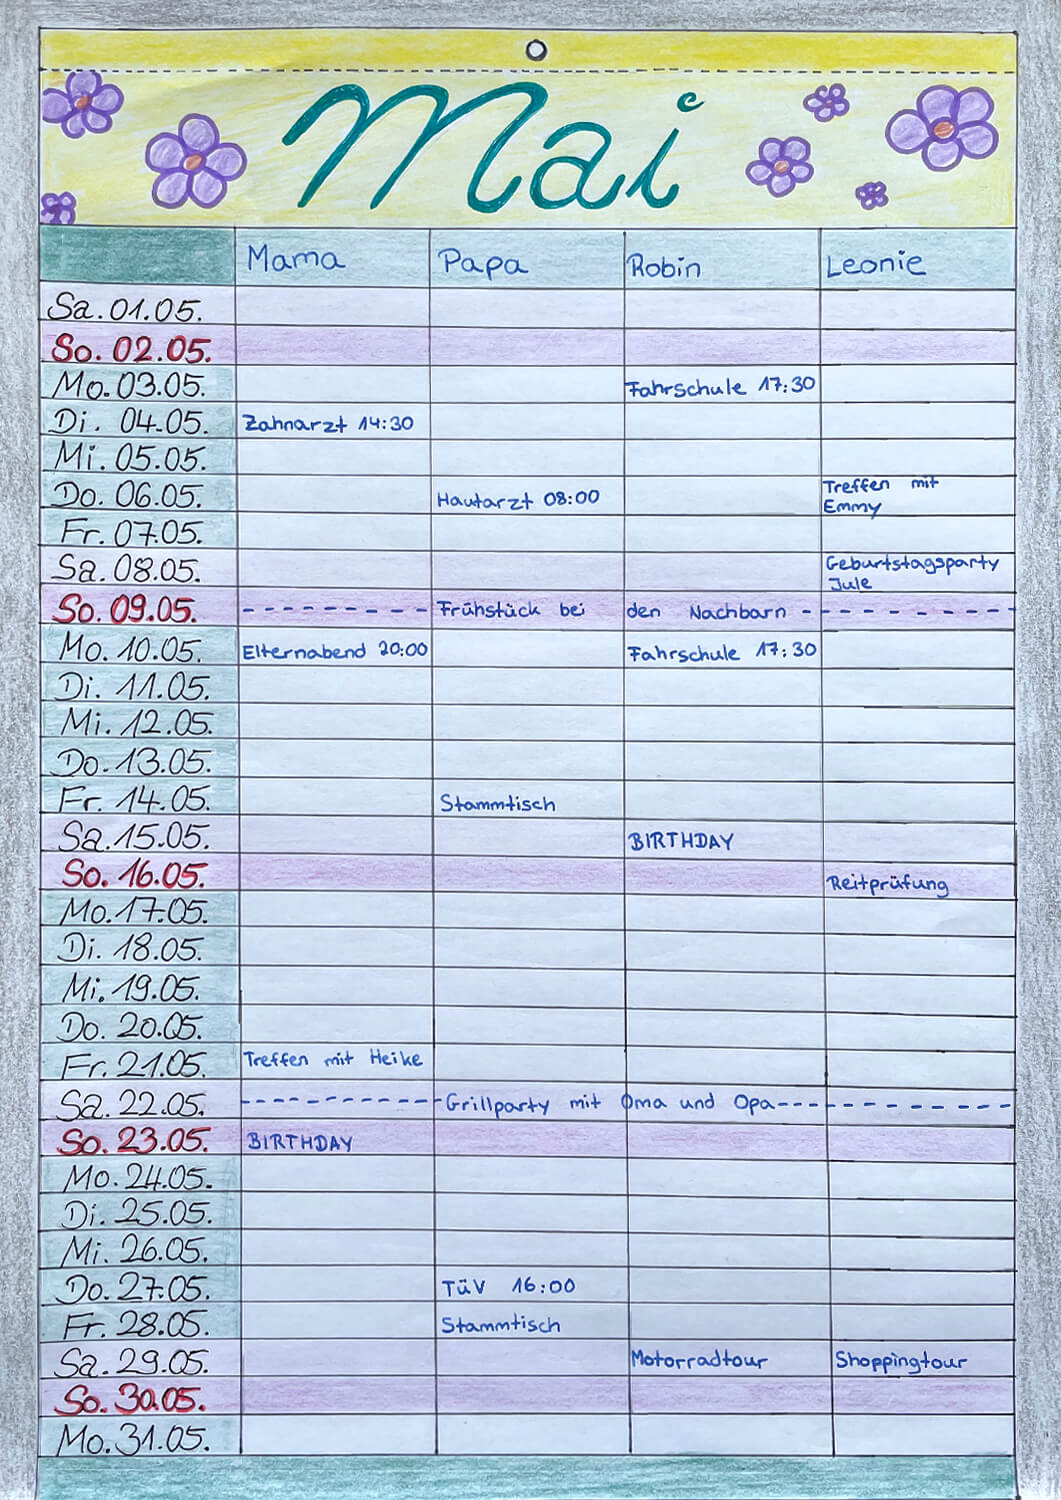 Mai
Mama Papa Robin Leonie
Sa. 01.05.
So. 02.05.
Mo. 03.05. Fahrschule 17:30
Di. 04.05. Zahnarzt 14:30
Mi. 05.05.
Do. 06.05. Hautarzt 08:00 Treffen mit
Emmy
Fr. 07.05.
Sa. 08.05. Geburtstagsparty
Jule
So. 09.05. Frühstück bei den Nachbarn
Mo. 10.05. Elternabend 20:00 Fahrschule 17:30
Di. 11.05.
Mi. 12.05.
Do. 13.05.
Fr. 14.05. Stammtisch
Sa. 15.05. BIRTHDAY
So. 16.05. Reitprüfung
Mo. 17.05.
Di. 18.05.
Mi. 19.05.
Do. 20.05.
Fr. 21.05. Treffen mit Heike
Sa. 22.05. Grillparty mit Oma und Opa
So. 23.05. BIRTHDAY
Mo. 24.05.
Di. 25.05.
Mi. 26.05.
Do. 27.05. TÜV 16:00
Fr. 28.05. Stammtisch
Sa. 29.05. Motorradtour Shoppingtour
So. 30.05.
Mo. 31.05.